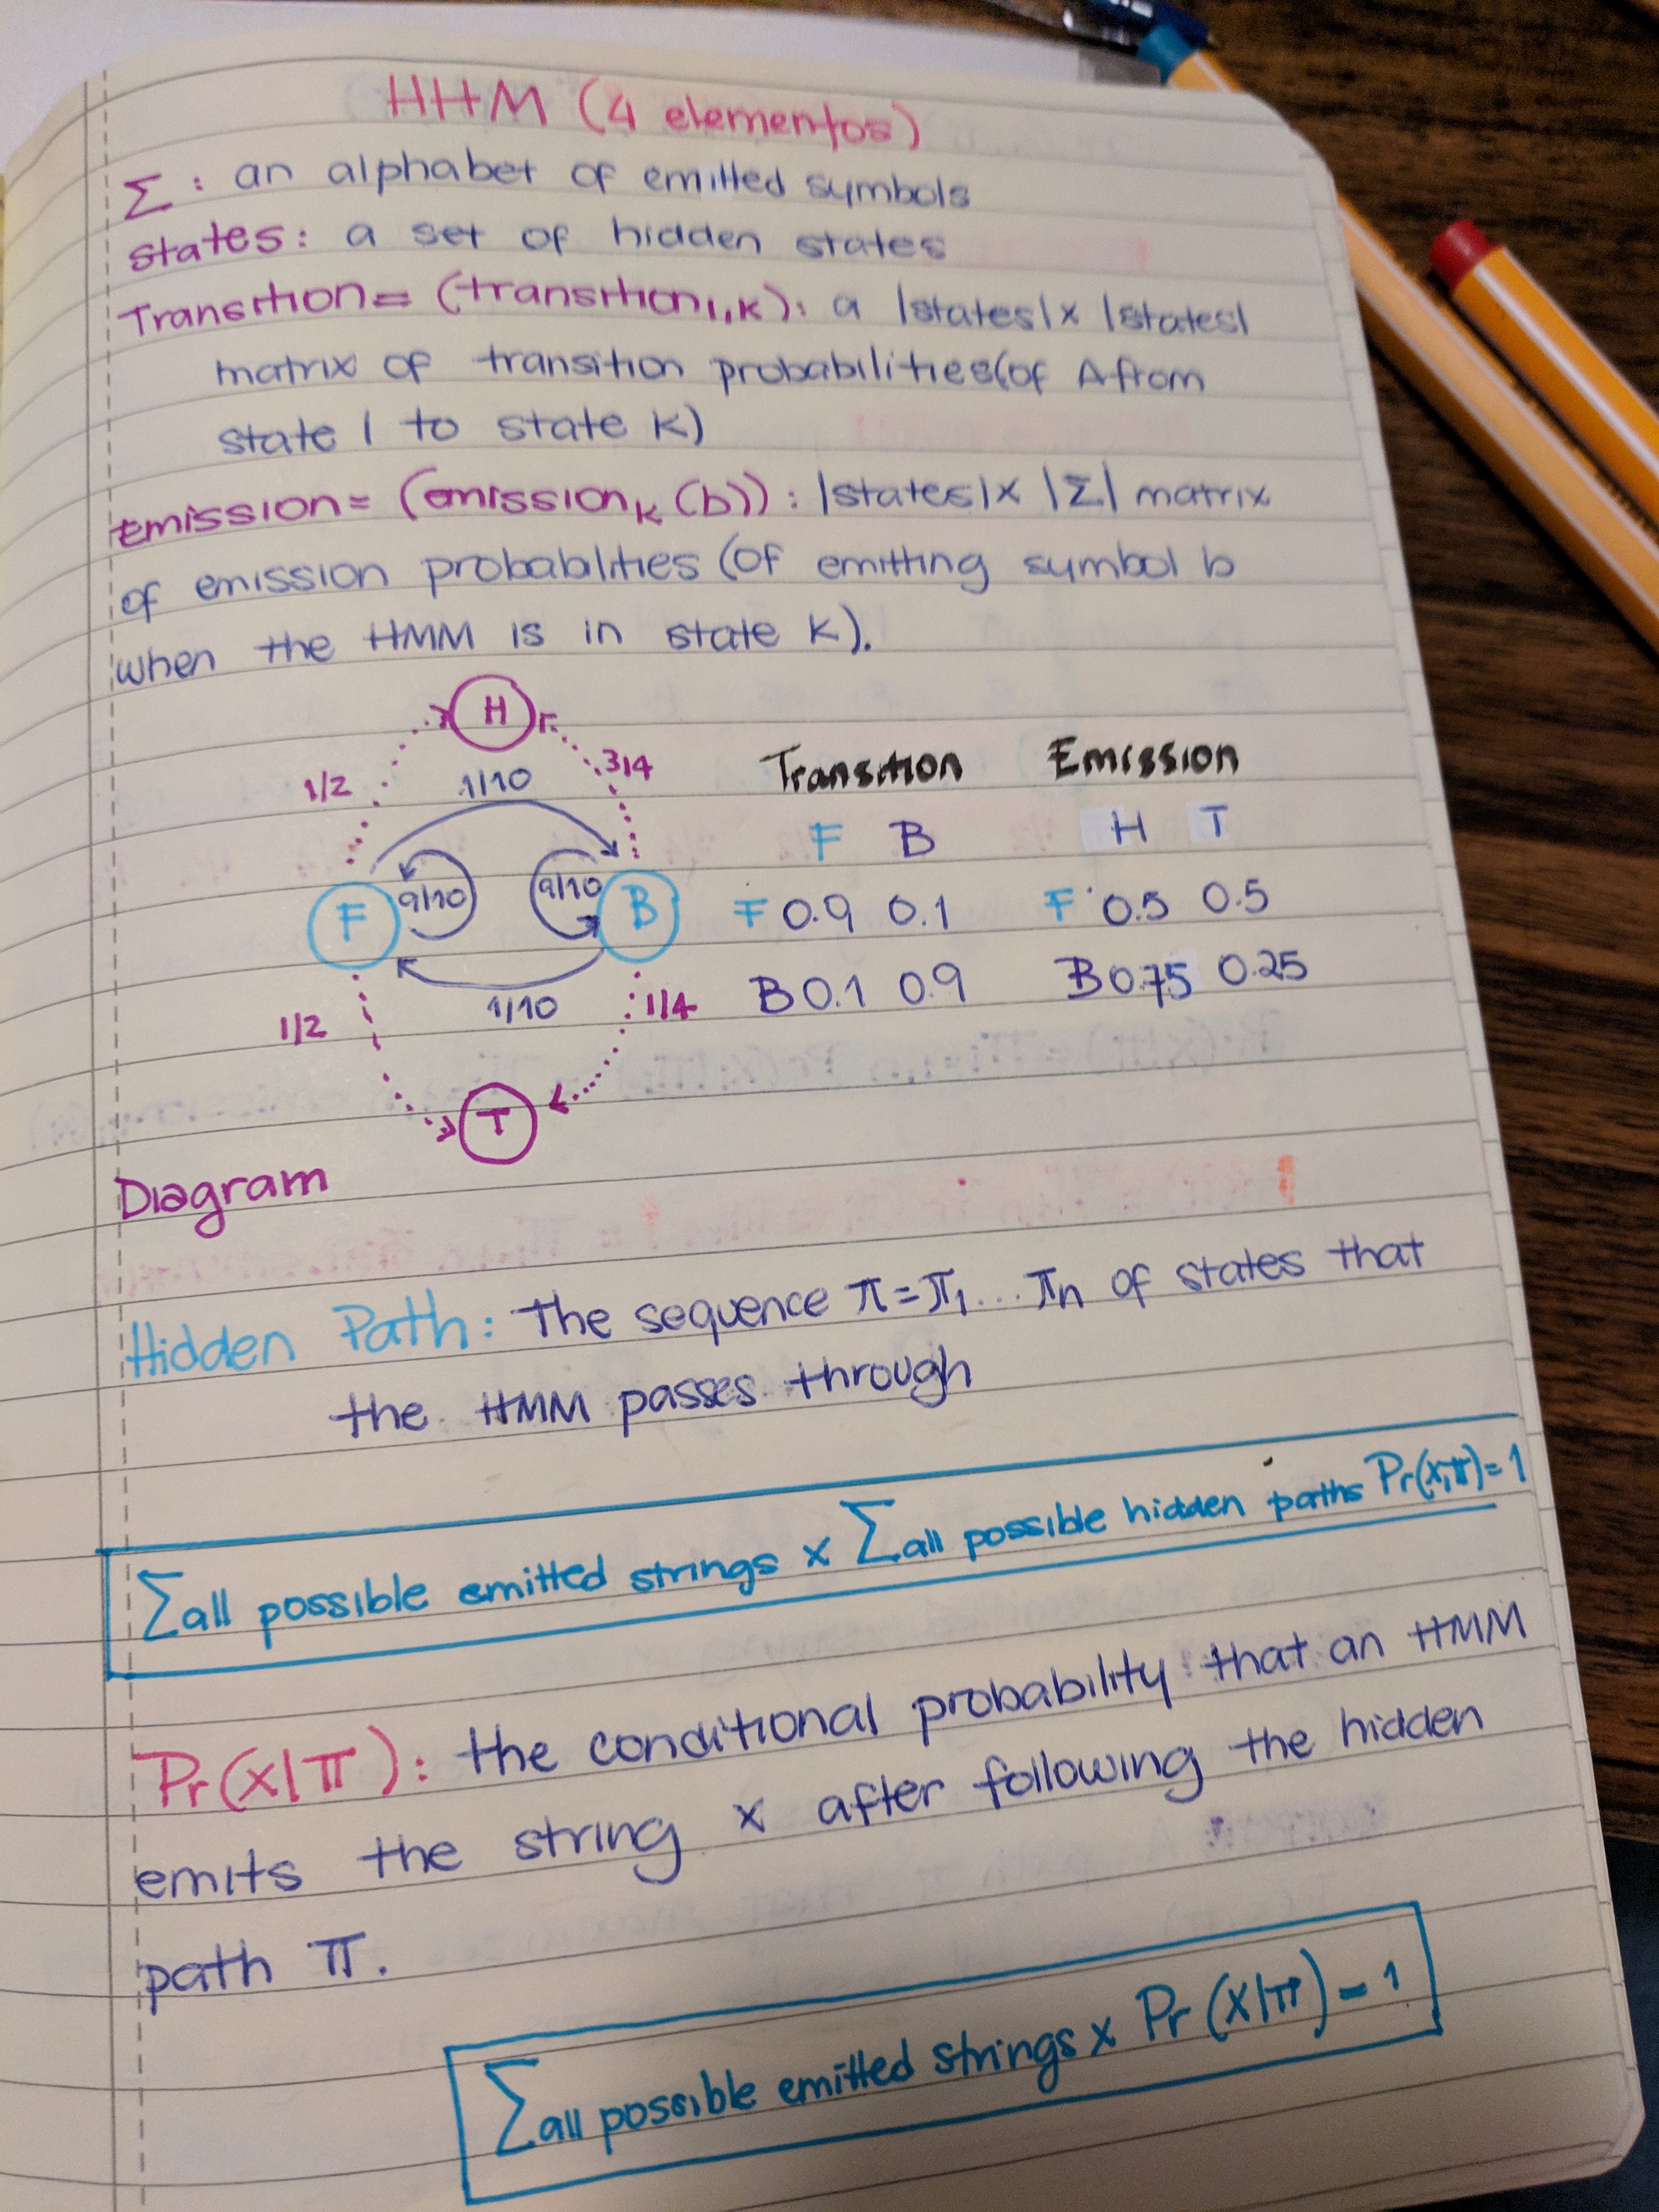 HHM (4 elementos)
Σ: an alphabet of emitted symbols
states: a set of hidden states
Transition= (transition₁,ₖ): a |states|x |states|
matrix of transition probabilities(of A from
state l to state K)
Emission= (emissionₖ (b)): |states|x |Σ| matrix
of emission probabalities (of emitting symbol b
when the HMM is in state K).
H
1/2
1/10
3/4
F
9/10
9/10
B
1/2
1/10
1/4
T
Transition
F B
F 0.9 0.1
B 0.1 0.9
Emission
H T
F 0.5 0.5
B 0.75 0.25
Diagram
Hidden Path: The sequence π=π₁...πn of states that
the HMM passes through
Σ all possible emitted strings x Σ all possible hidden paths Pr(x,π)=1
Pr(x|π): the conditional probability that an HMM
emits the string x after following the hidden
path π.
Σ all possible emitted strings x Pr(x|π)=1